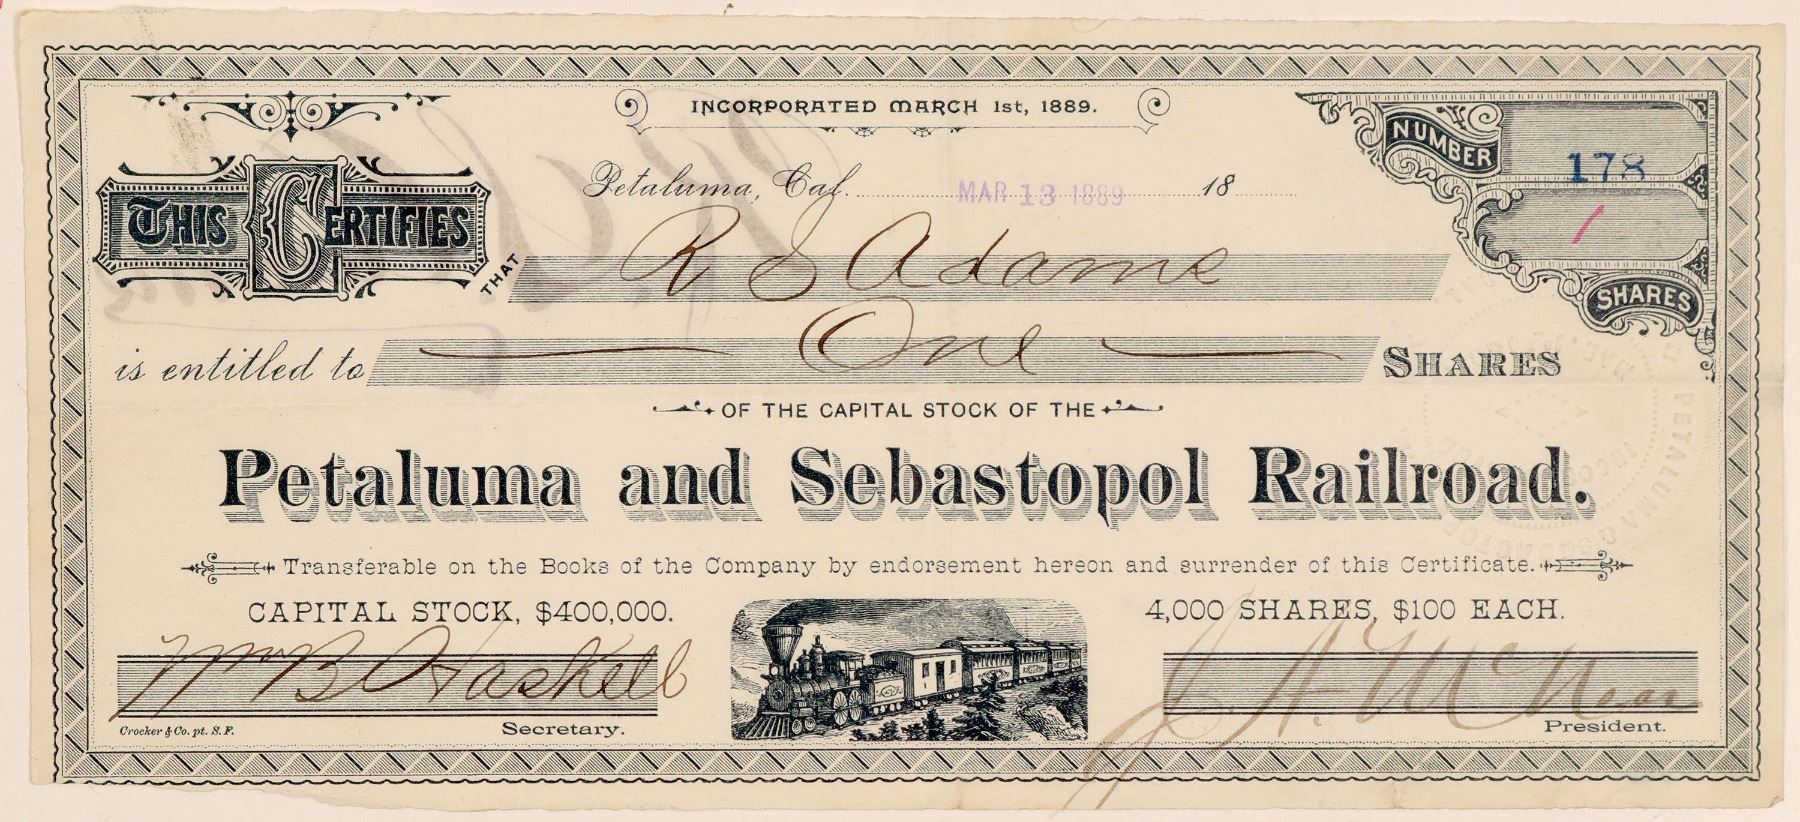 INCORPORATED MARCH 1st, 1889.
NUMBER 178
Petaluma, Cal. MAR 13 1889 18
1 SHARES
THIS CERTIFIES THAT R S Adams
is entitled to One SHARES
OF THE CAPITAL STOCK OF THE
Petaluma and Sebastopol Railroad.
Transferable on the Books of the Company by endorsement hereon and surrender of this Certificate.
CAPITAL STOCK, $400,000.
4,000 SHARES, $100 EACH.
Wm B Haskell
J. A. McNear
Crocker & Co. pt. S. F.
Secretary.
President.